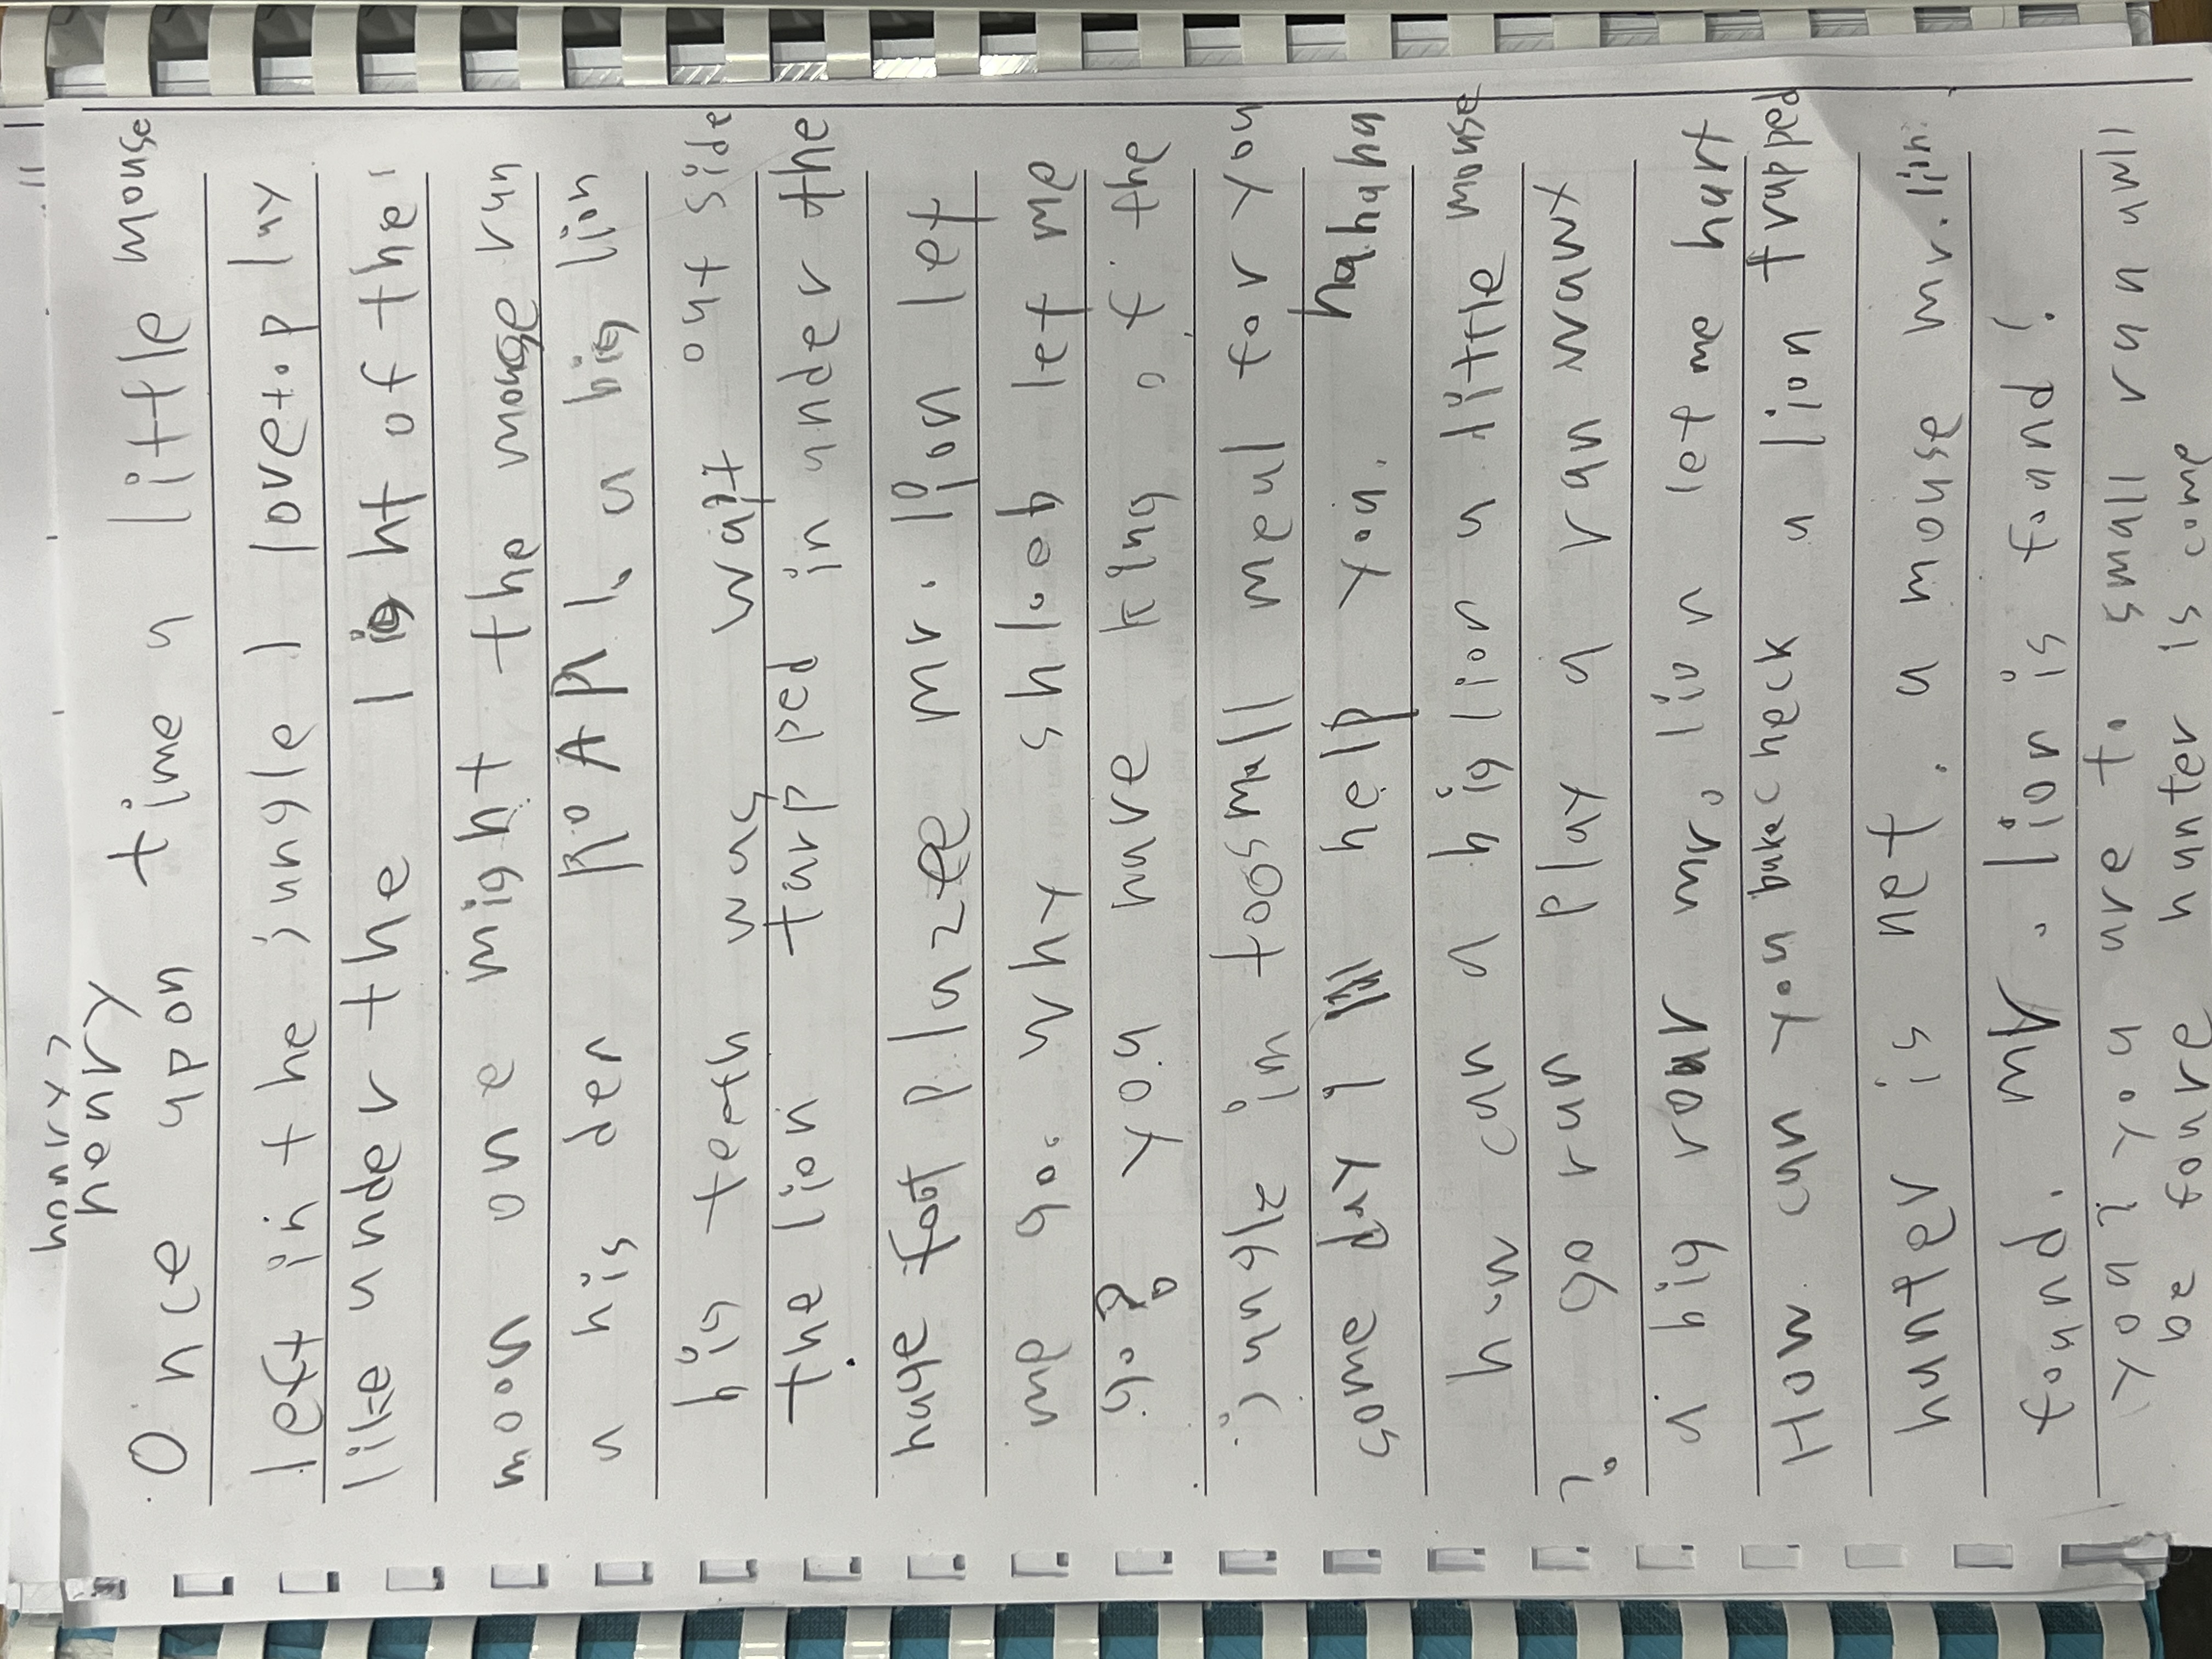 honry
henry
Once upon time a little mouse
left in the jungle I love to play
like under the light of the
moon one might the mouse run
a his den ROAR 1. a big lion
big teeth was wait out side
the lion tarpped in under the
huge foot plazee mr. lion let
me go. why shloeb let me
go? you have king of the
jungle im toosmall meal for you
some day I'll help you. hahaha
how can a big lion a little mouse
? go run play a ran wawx
a big roar mr. lion let me hart
How can you bunacheck a lion trapped
hunter is net. a mouse mr. lin
found. mr. lion is found!
you? you are to small run awll
be foure hunter is come